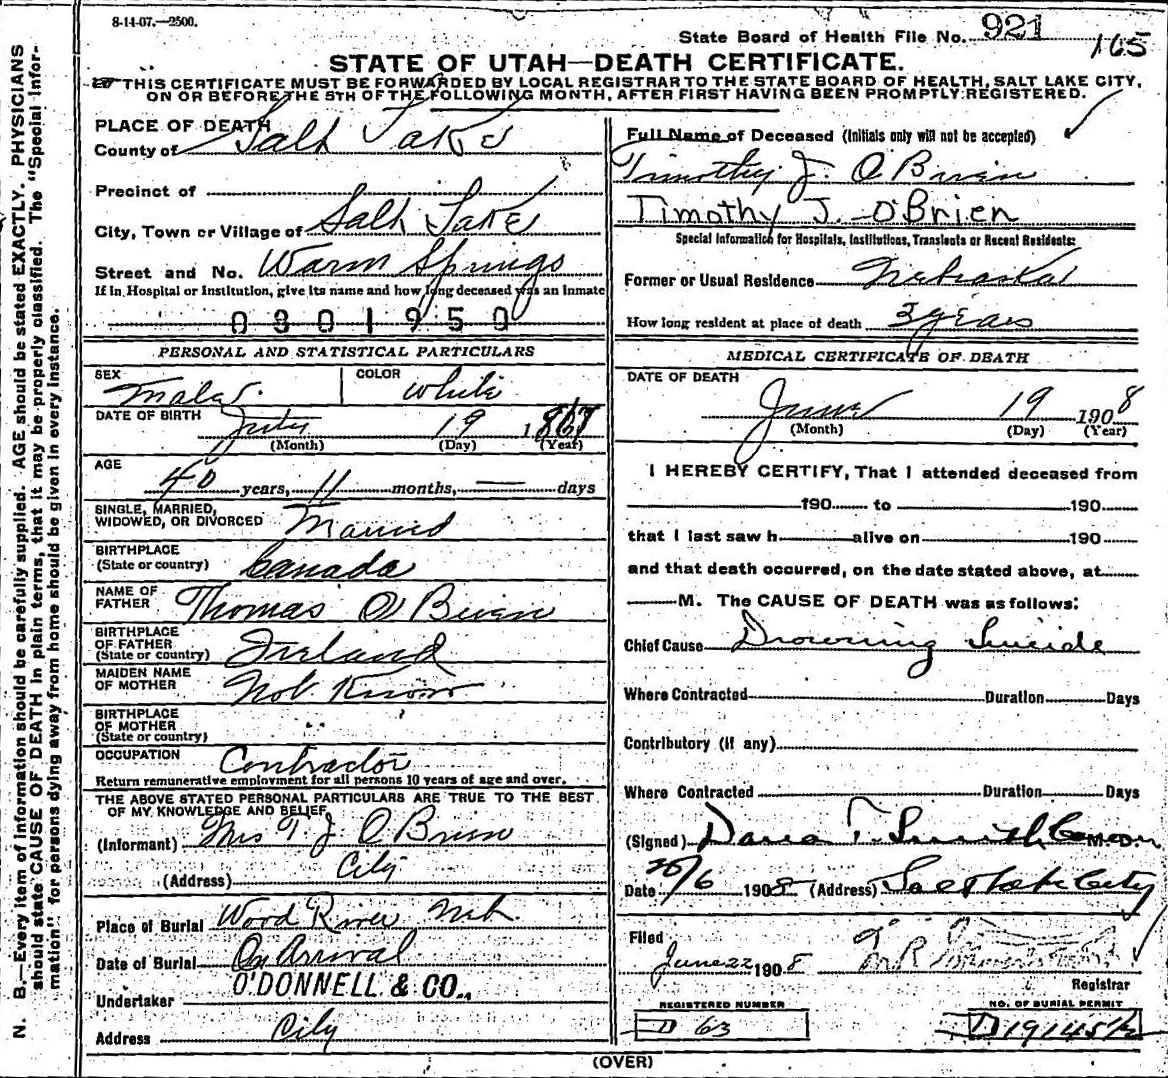 8-14-07.—2500.
State Board of Health File No. 921
165
STATE OF UTAH—DEATH CERTIFICATE.
THIS CERTIFICATE MUST BE FORWARDED BY LOCAL REGISTRAR TO THE STATE BOARD OF HEALTH, SALT LAKE CITY,
ON OR BEFORE THE 5TH OF THE FOLLOWING MONTH, AFTER FIRST HAVING BEEN PROMPTLY REGISTERED.
N. B.—Every item of information should be carefully supplied. AGE should be stated EXACTLY. PHYSICIANS
should state CAUSE OF DEATH in plain terms, that it may be properly classified. The "Special Infor-
mation" for persons dying away from home should be given in every instance.
PLACE OF DEATH
County of Salt Lake
Precinct of
City, Town or Village of Salt Lake
Street and No. Warm Springs
If in Hospital or Institution, give its name and how long deceased was an inmate
0301950
PERSONAL AND STATISTICAL PARTICULARS
SEX Male
COLOR White
DATE OF BIRTH July 19 1867
(Month) (Day) (Year)
AGE
40 years, 11 months, — days
SINGLE, MARRIED,
WIDOWED, OR DIVORCED Married
BIRTHPLACE
(State or country) Canada
NAME OF
FATHER Thomas O'Brien
BIRTHPLACE
OF FATHER
(State or country) Ireland
MAIDEN NAME
OF MOTHER Not Know
BIRTHPLACE
OF MOTHER
(State or country) " "
OCCUPATION Contractor
Return remunerative employment for all persons 10 years of age and over.
THE ABOVE STATED PERSONAL PARTICULARS ARE TRUE TO THE BEST
OF MY KNOWLEDGE AND BELIEF
(Informant) Mrs T J O'Brien
(Address) City
Place of Burial Wood River Neb
Date of Burial On Arrival
Undertaker O'DONNELL & CO.,
Address City
Full Name of Deceased (Initials only will not be accepted)
Timothy J. O'Brien
Timothy J. O'Brien
Special Information for Hospitals, Institutions, Transients or Recent Residents:
Former or Usual Residence Nebraska
How long resident at place of death 3 years
MEDICAL CERTIFICATE OF DEATH
DATE OF DEATH
June 19 1908
(Month) (Day) (Year)
I HEREBY CERTIFY, That I attended deceased from
190 to 190
that I last saw h alive on 190
and that death occurred, on the date stated above, at
M. The CAUSE OF DEATH was as follows:
Chief Cause Drowning Suicide
Where Contracted Duration Days
Contributory (if any)
Where Contracted Duration Days
(Signed) Dana T. Smith M.D.
Date 20/6 1908 (Address) Salt Lake City
Filed
June 22 1908
Registrar
REGISTERED NUMBER
D 63
NO. OF BURIAL PERMIT
D19145½
(OVER)